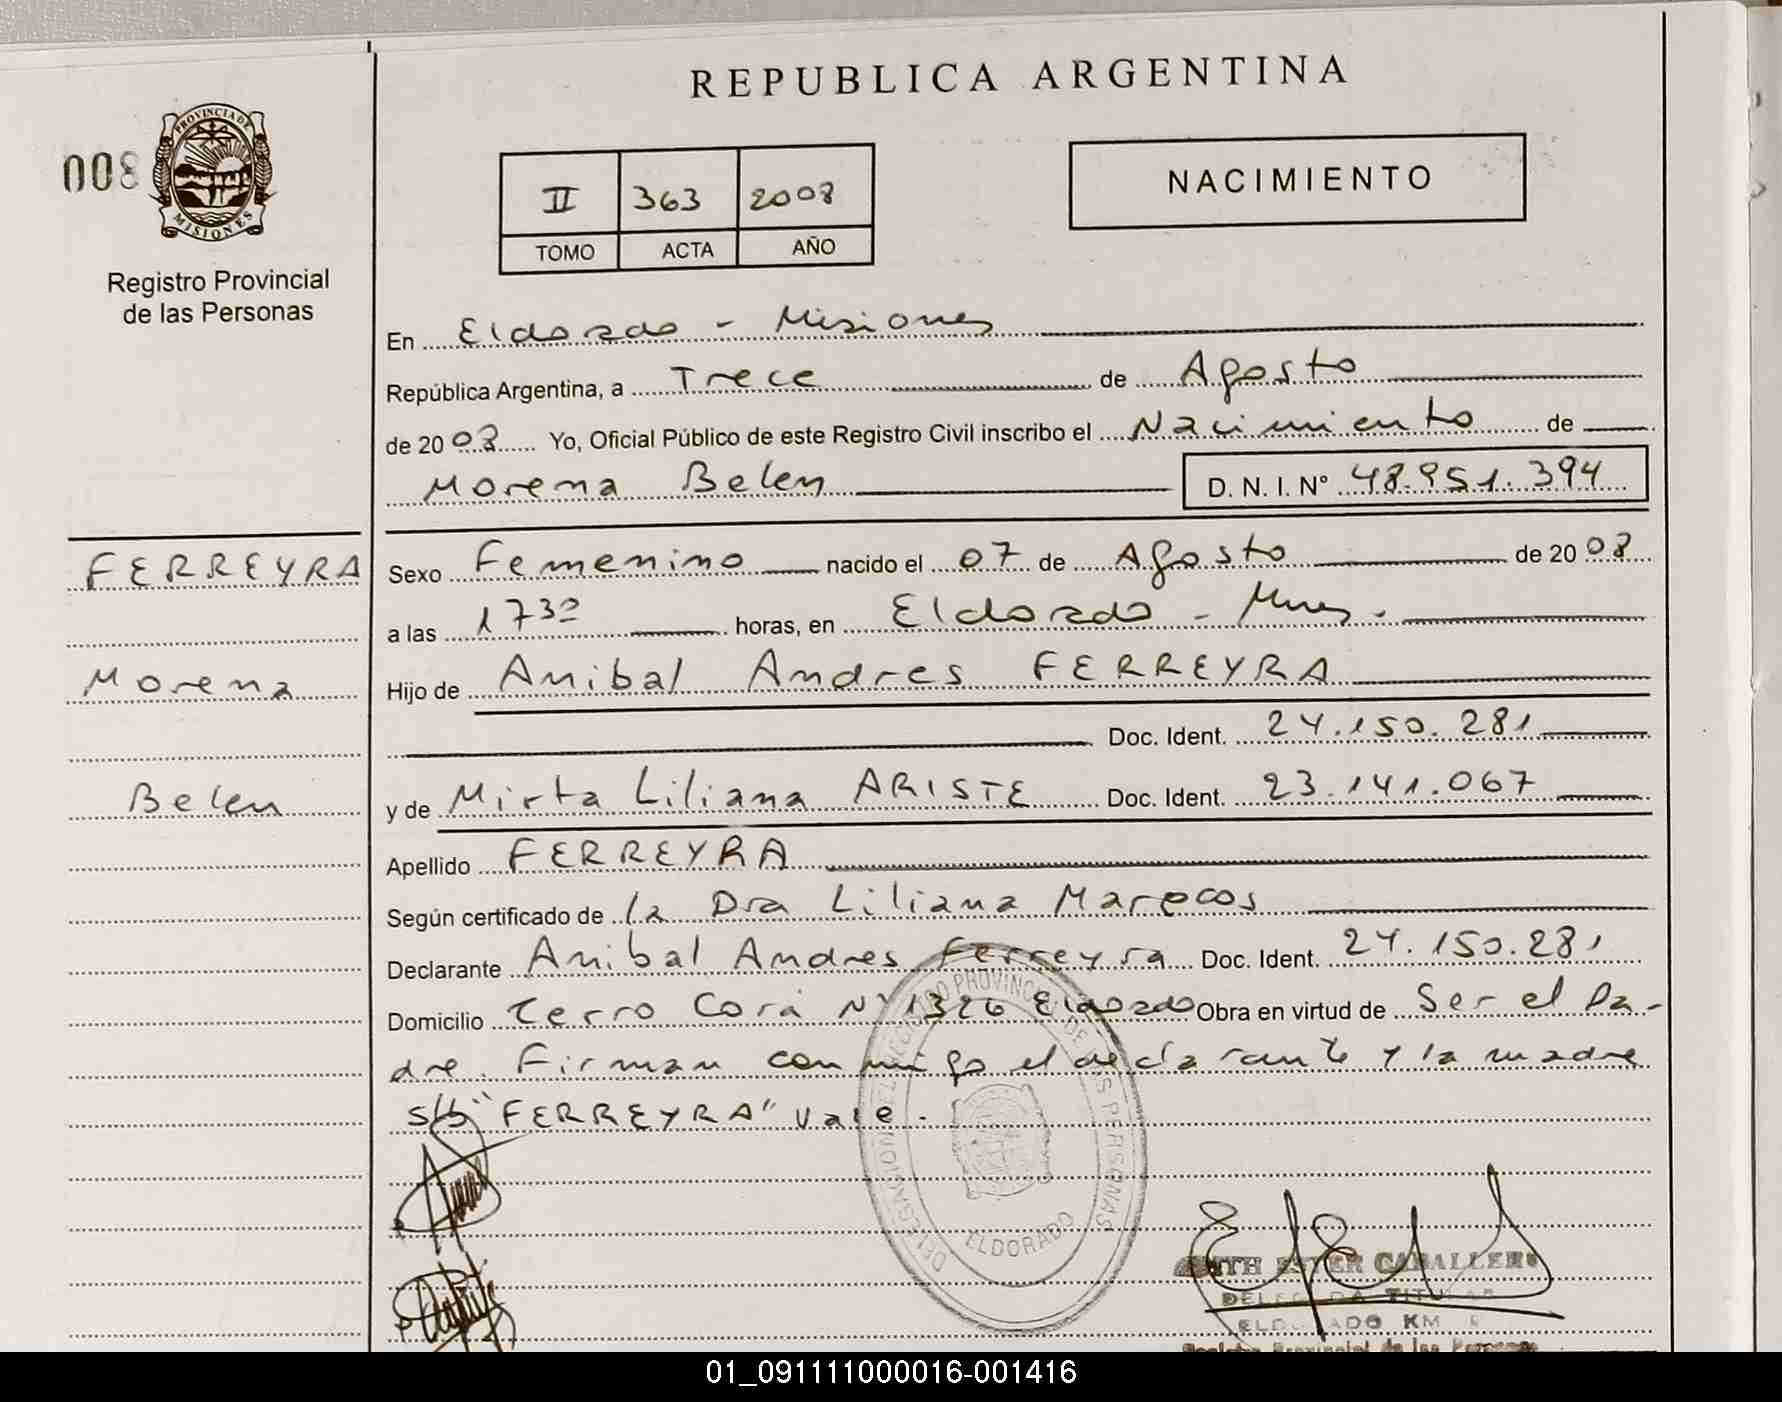 REPUBLICA ARGENTINA
008
PROVINCIA DE MISIONES
Registro Provincial
de las Personas
II 363 2008
TOMO ACTA AÑO
NACIMIENTO
En Eldorado - Misiones
República Argentina, a Trece de Agosto
de 2008 Yo, Oficial Público de este Registro Civil inscribo el Nacimiento de
Morena Belen D. N. I. N° 48.951.394
FERREYRA
Morena
Belen
Sexo Femenino nacido el 07 de Agosto de 2008
a las 1730 horas, en Eldorado - Mnes.
Hijo de Anibal Andres FERREYRA
Doc. Ident. 24.150.281
y de Mirta Liliana ARISTE Doc. Ident. 23.141.067
Apellido FERREYRA
Según certificado de la Dra Liliana Marecos
Declarante Anibal Andres Ferreyra Doc. Ident. 24.150.281
Domicilio Cerro Corá N° 1326 Eldorado Obra en virtud de Ser el Pa-
dre. Firman conmigo el declarante y la madre
S/b "FERREYRA" Vale.
DELEGACION REGISTRO PROVINCIAL DE LAS PERSONAS
ELDORADO
EDITH ESTER CABALLERO
DELEGADA TITULAR
ELDORADO KM
Registro Provincial de las Personas
01_091111000016-001416